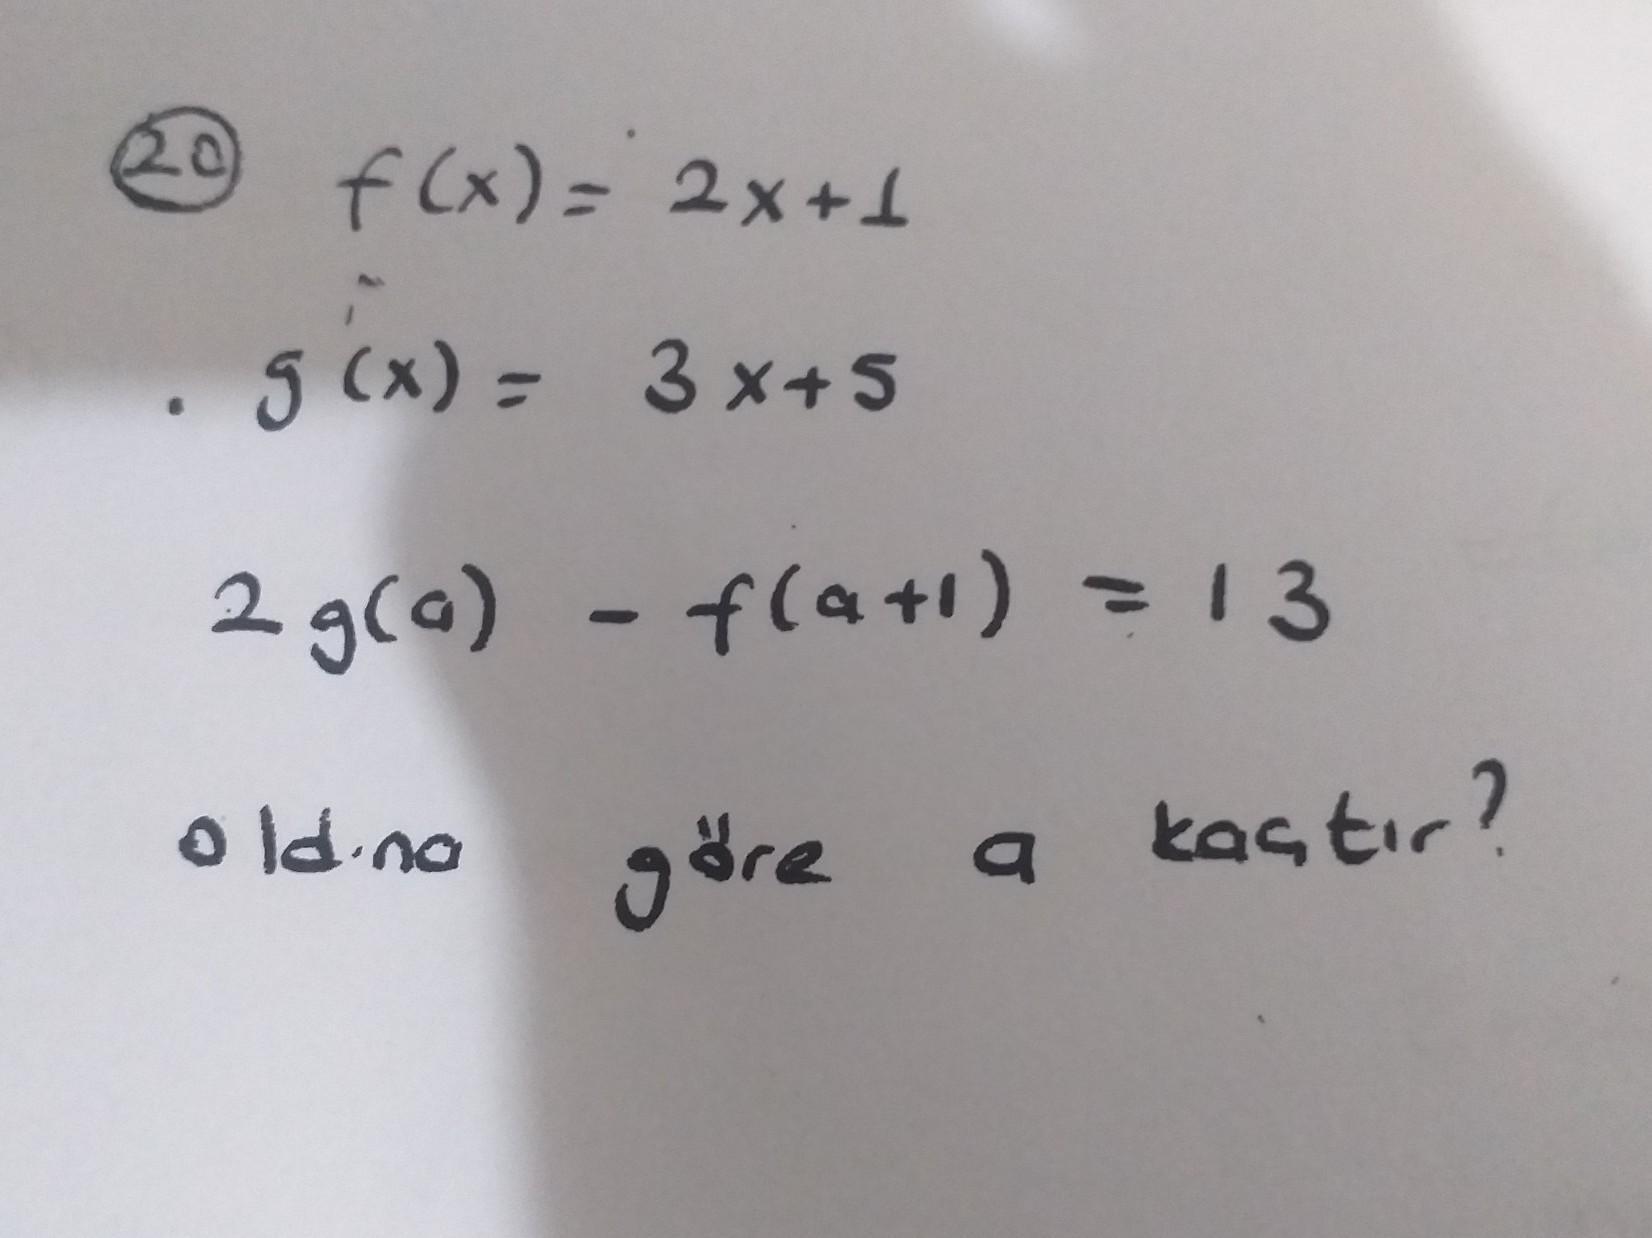 20 f(x) = 2x+1
. g(x) = 3x+5
2g(a) - f(a+1) = 13
old.na göre a kaçtır?